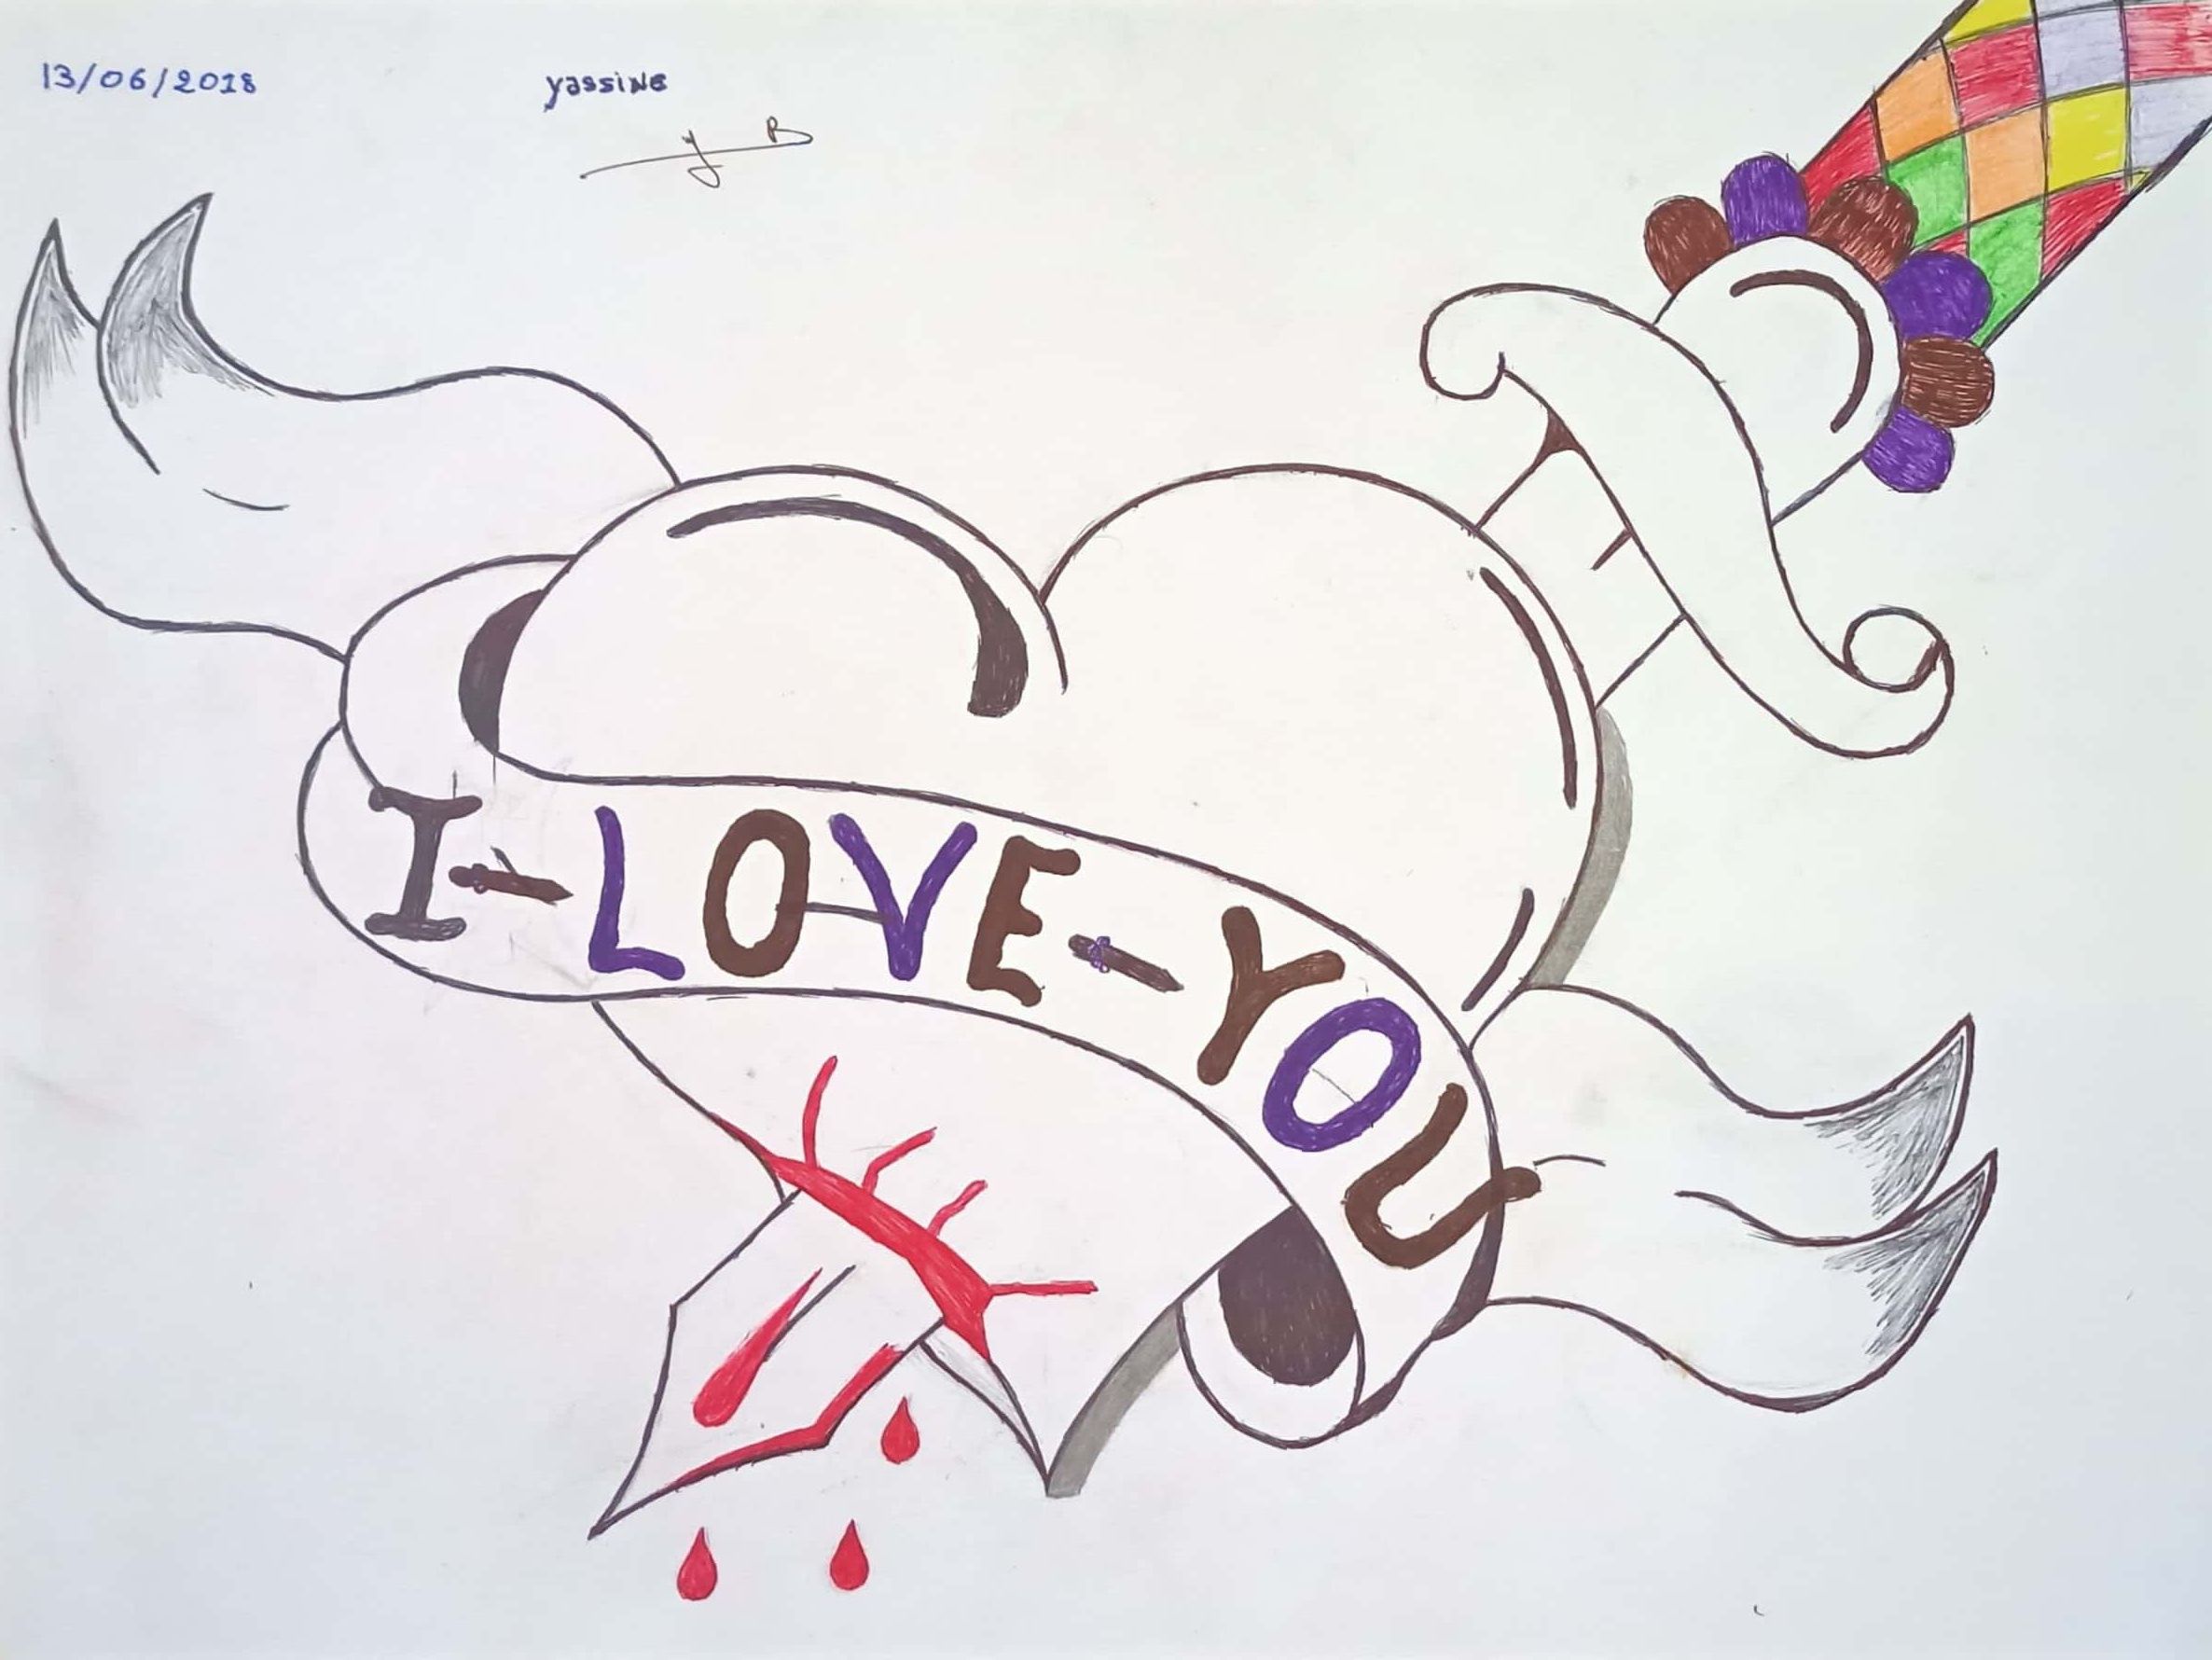 13/06/2018
yassine
y B
I-LOVE-YOU